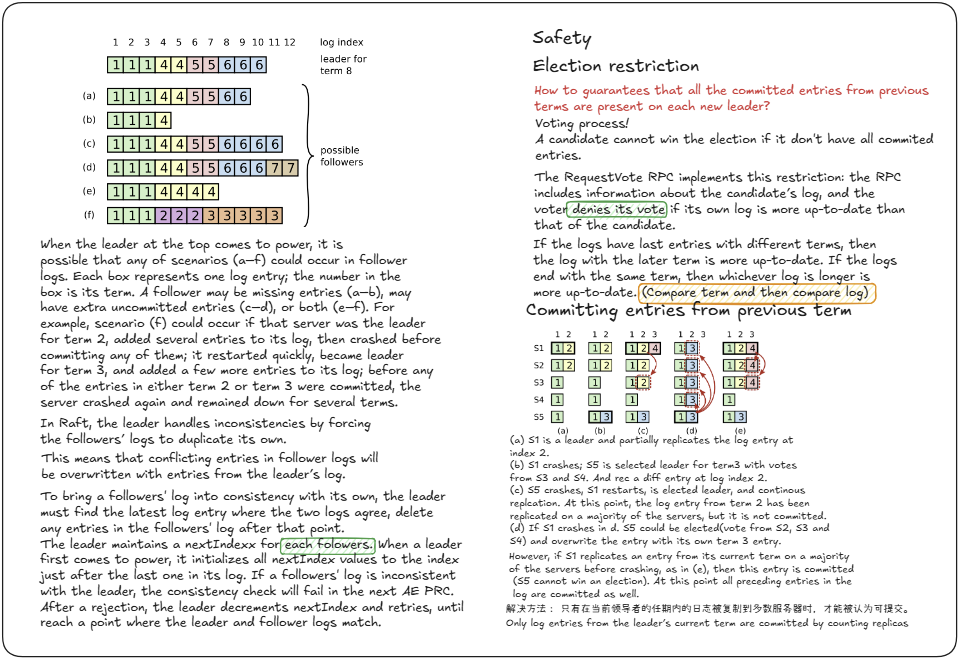 1 2 3 4 5 6 7 8 9 10 11 12 log index
1 1 1 4 4 5 5 6 6 6 leader for
term 8
(a) 1 1 1 4 4 5 5 6 6
(b) 1 1 1 4
(c) 1 1 1 4 4 5 5 6 6 6 6
(d) 1 1 1 4 4 5 5 6 6 6 7 7
(e) 1 1 1 4 4 4 4
(f) 1 1 1 2 2 2 3 3 3 3 3
possible
followers
When the leader at the top comes to power, it is
possible that any of scenarios (a–f) could occur in follower
logs. Each box represents one log entry; the number in the
box is its term. A follower may be missing entries (a–b), may
have extra uncommitted entries (c–d), or both (e–f). For
example, scenario (f) could occur if that server was the leader
for term 2, added several entries to its log, then crashed before
committing any of them; it restarted quickly, became leader
for term 3, and added a few more entries to its log; before any
of the entries in either term 2 or term 3 were committed, the
server crashed again and remained down for several terms.
In Raft, the leader handles inconsistencies by forcing
the followers' logs to duplicate its own.
This means that conflicting entries in follower logs will
be overwritten with entries from the leader's log.
To bring a followers' log into consistency with its own, the leader
must find the latest log entry where the two logs agree, delete
any entries in the followers' log after that point.
The leader maintains a nextIndexx for each folowers. When a leader
first comes to power, it initializes all nextIndex values to the index
just after the last one in its log. If a followers' log is inconsistent
with the leader, the consistency check will fail in the next AE PRC.
After a rejection, the leader decrements nextIndex and retries, until
reach a point where the leader and follower logs match.
Safety
Election restriction
How to guarantees that all the committed entries from previous
terms are present on each new leader?
Voting process!
A candidate cannot win the election if it don't have all commited
entries.
The RequestVote RPC implements this restriction: the RPC
includes information about the candidate's log, and the
voter denies its vote if its own log is more up-to-date than
that of the candidate.
If the logs have last entries with different terms, then
the log with the later term is more up-to-date. If the logs
end with the same term, then whichever log is longer is
more up-to-date. (Compare term and then compare log)
Committing entries from previous term
1 2 1 2 1 2 3 1 2 3 1 2 3
S1 1 2 1 2 1 2 4 1 3 1 2 4
S2 1 2 1 2 1 2 1 3 1 2 4
S3 1 1 1 2 1 3 1 2 4
S4 1 1 1 1 3 1
S5 1 1 3 1 3 1 3 1 3
(a) (b) (c) (d) (e)
(a) S1 is a leader and partially replicates the log entry at
index 2.
(b) S1 crashes; S5 is selected leader for term3 with votes
from S3 and S4. And rec a diff entry at log index 2.
(c) S5 crashes, S1 restarts, is elected leader, and continous
replcation. At this point, the log entry from term 2 has been
replicated on a majority of the servers, but it is not committed.
(d) If S1 crashes in d. S5 could be elected(vote from S2, S3 and
S4) and overwrite the entry with its own term 3 entry.
However, if S1 replicates an entry from its current term on a majority
of the servers before crashing, as in (e), then this entry is committed
(S5 cannot win an election). At this point all preceding entries in the
log are committed as well.
解决方法： 只有在当前领导者的任期内的日志被复制到多数服务器时，才能被认为可提交。
Only log entries from the leader's current term are committed by counting replicas